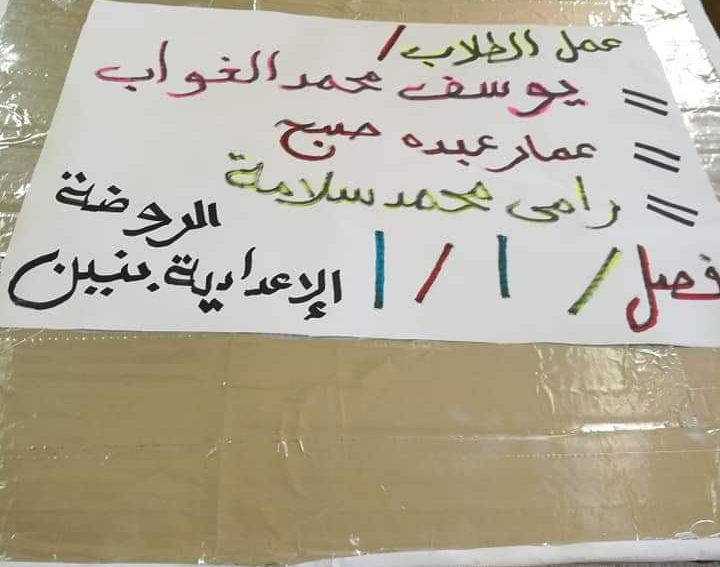 عمل الطلاب/
= يوسف محمد الغواب
= عمار عبده صبح
= رامى محمد سلامة
فصل / ١ / ١
الروضة
الإعدادية بنين